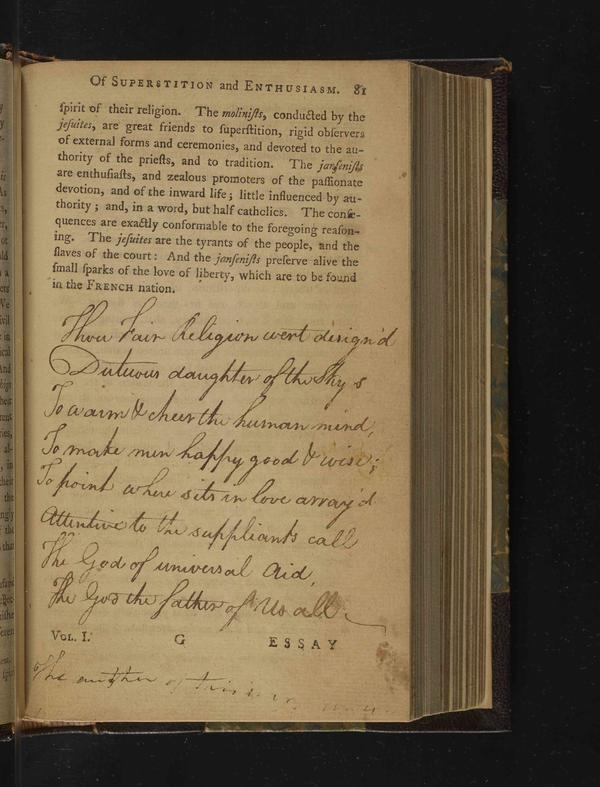 Of SUPERSTITION and ENTHUSIASM. 81
ſpirit of their religion. The moliniſts, conducted by the
jeſuites, are great friends to ſuperſtition, rigid obſervers
of external forms and ceremonies, and devoted to the au-
thority of the prieſts, and to tradition. The janſeniſts
are enthuſiaſts, and zealous promoters of the paſſionate
devotion, and of the inward life; little influenced by au-
thority; and, in a word, but half catholics. The conſe-
quences are exactly conformable to the foregoing reaſon-
ing. The jeſuites are the tyrants of the people, and the
ſlaves of the court: And the janſeniſts preſerve alive the
ſmall ſparks of the love of liberty, which are to be found
in the FRENCH nation.
Thou Fair Religion wert design'd
Dutuous daughter of the Skys
To warm & cheer the human mind,
To make men happy good & wise;
To point where sits in love array'd
Attentive to the suppliants call
The God of universal Aid,
The God the father of Us all
VOL. I. G ESSAY
The author of this